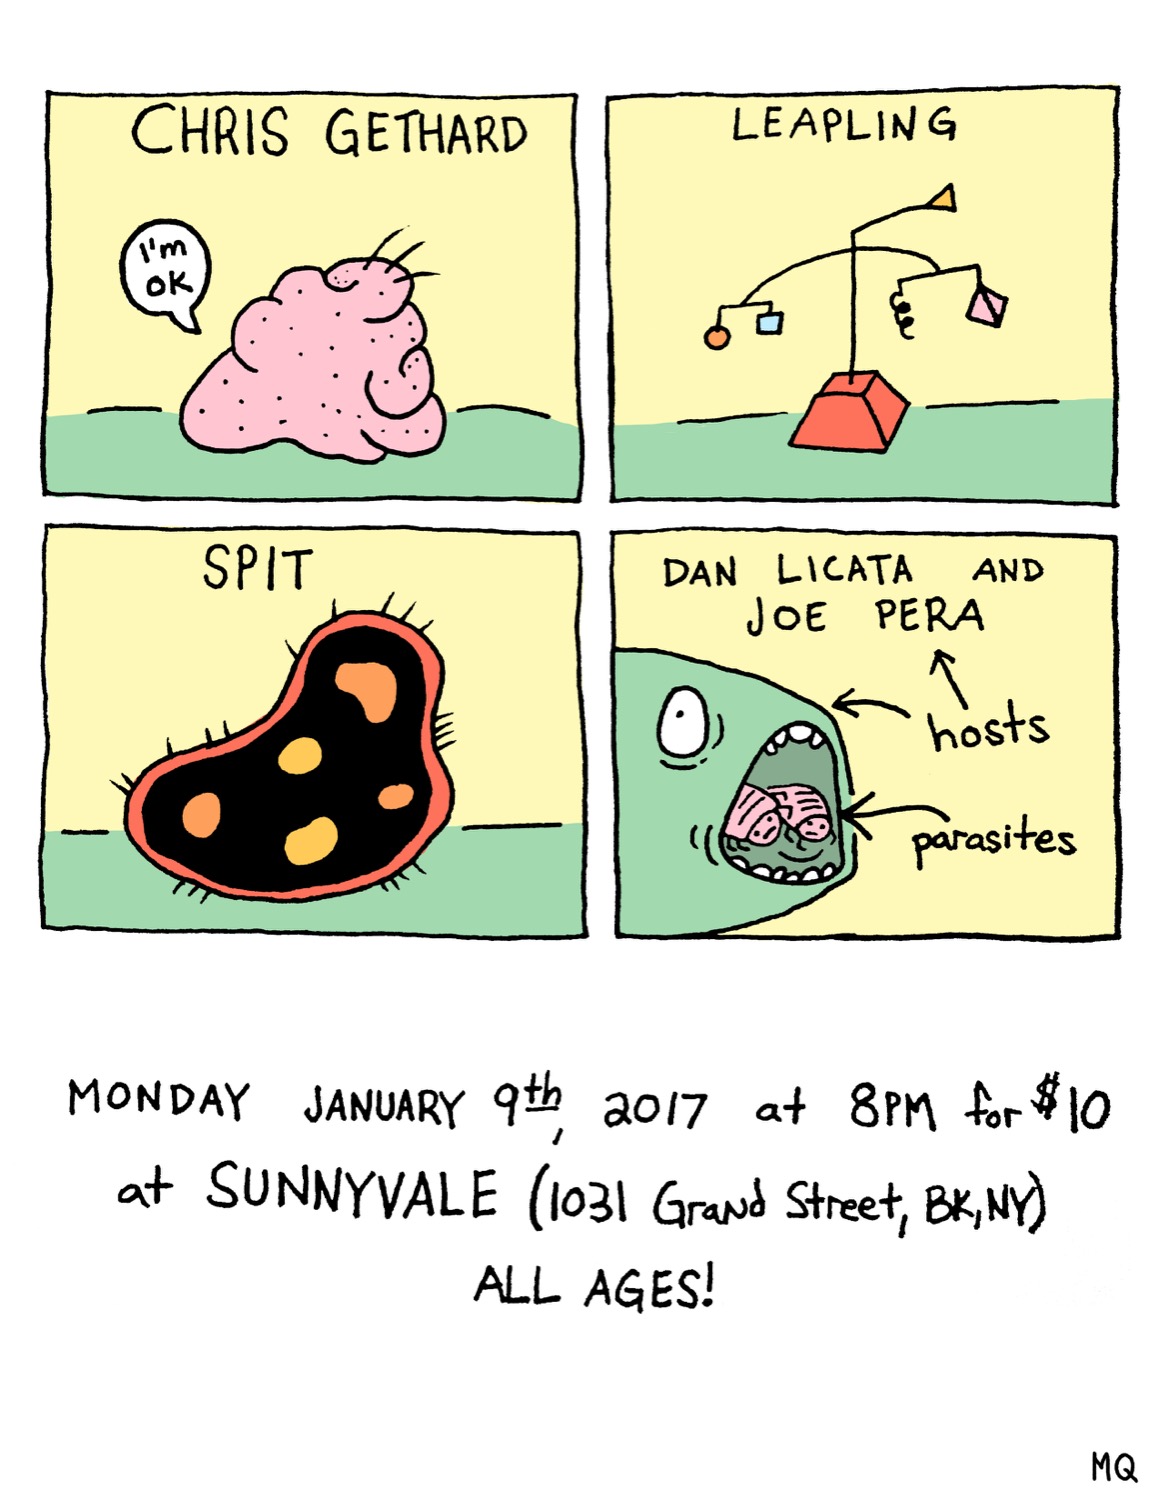 CHRIS GETHARD
I'm
OK
LEAPLING
SPIT
DAN LICATA AND
JOE PERA
hosts
parasites
MONDAY JANUARY 9th, 2017 at 8PM for $10
at SUNNYVALE (1031 Grand Street, BK, NY)
ALL AGES!
MQ